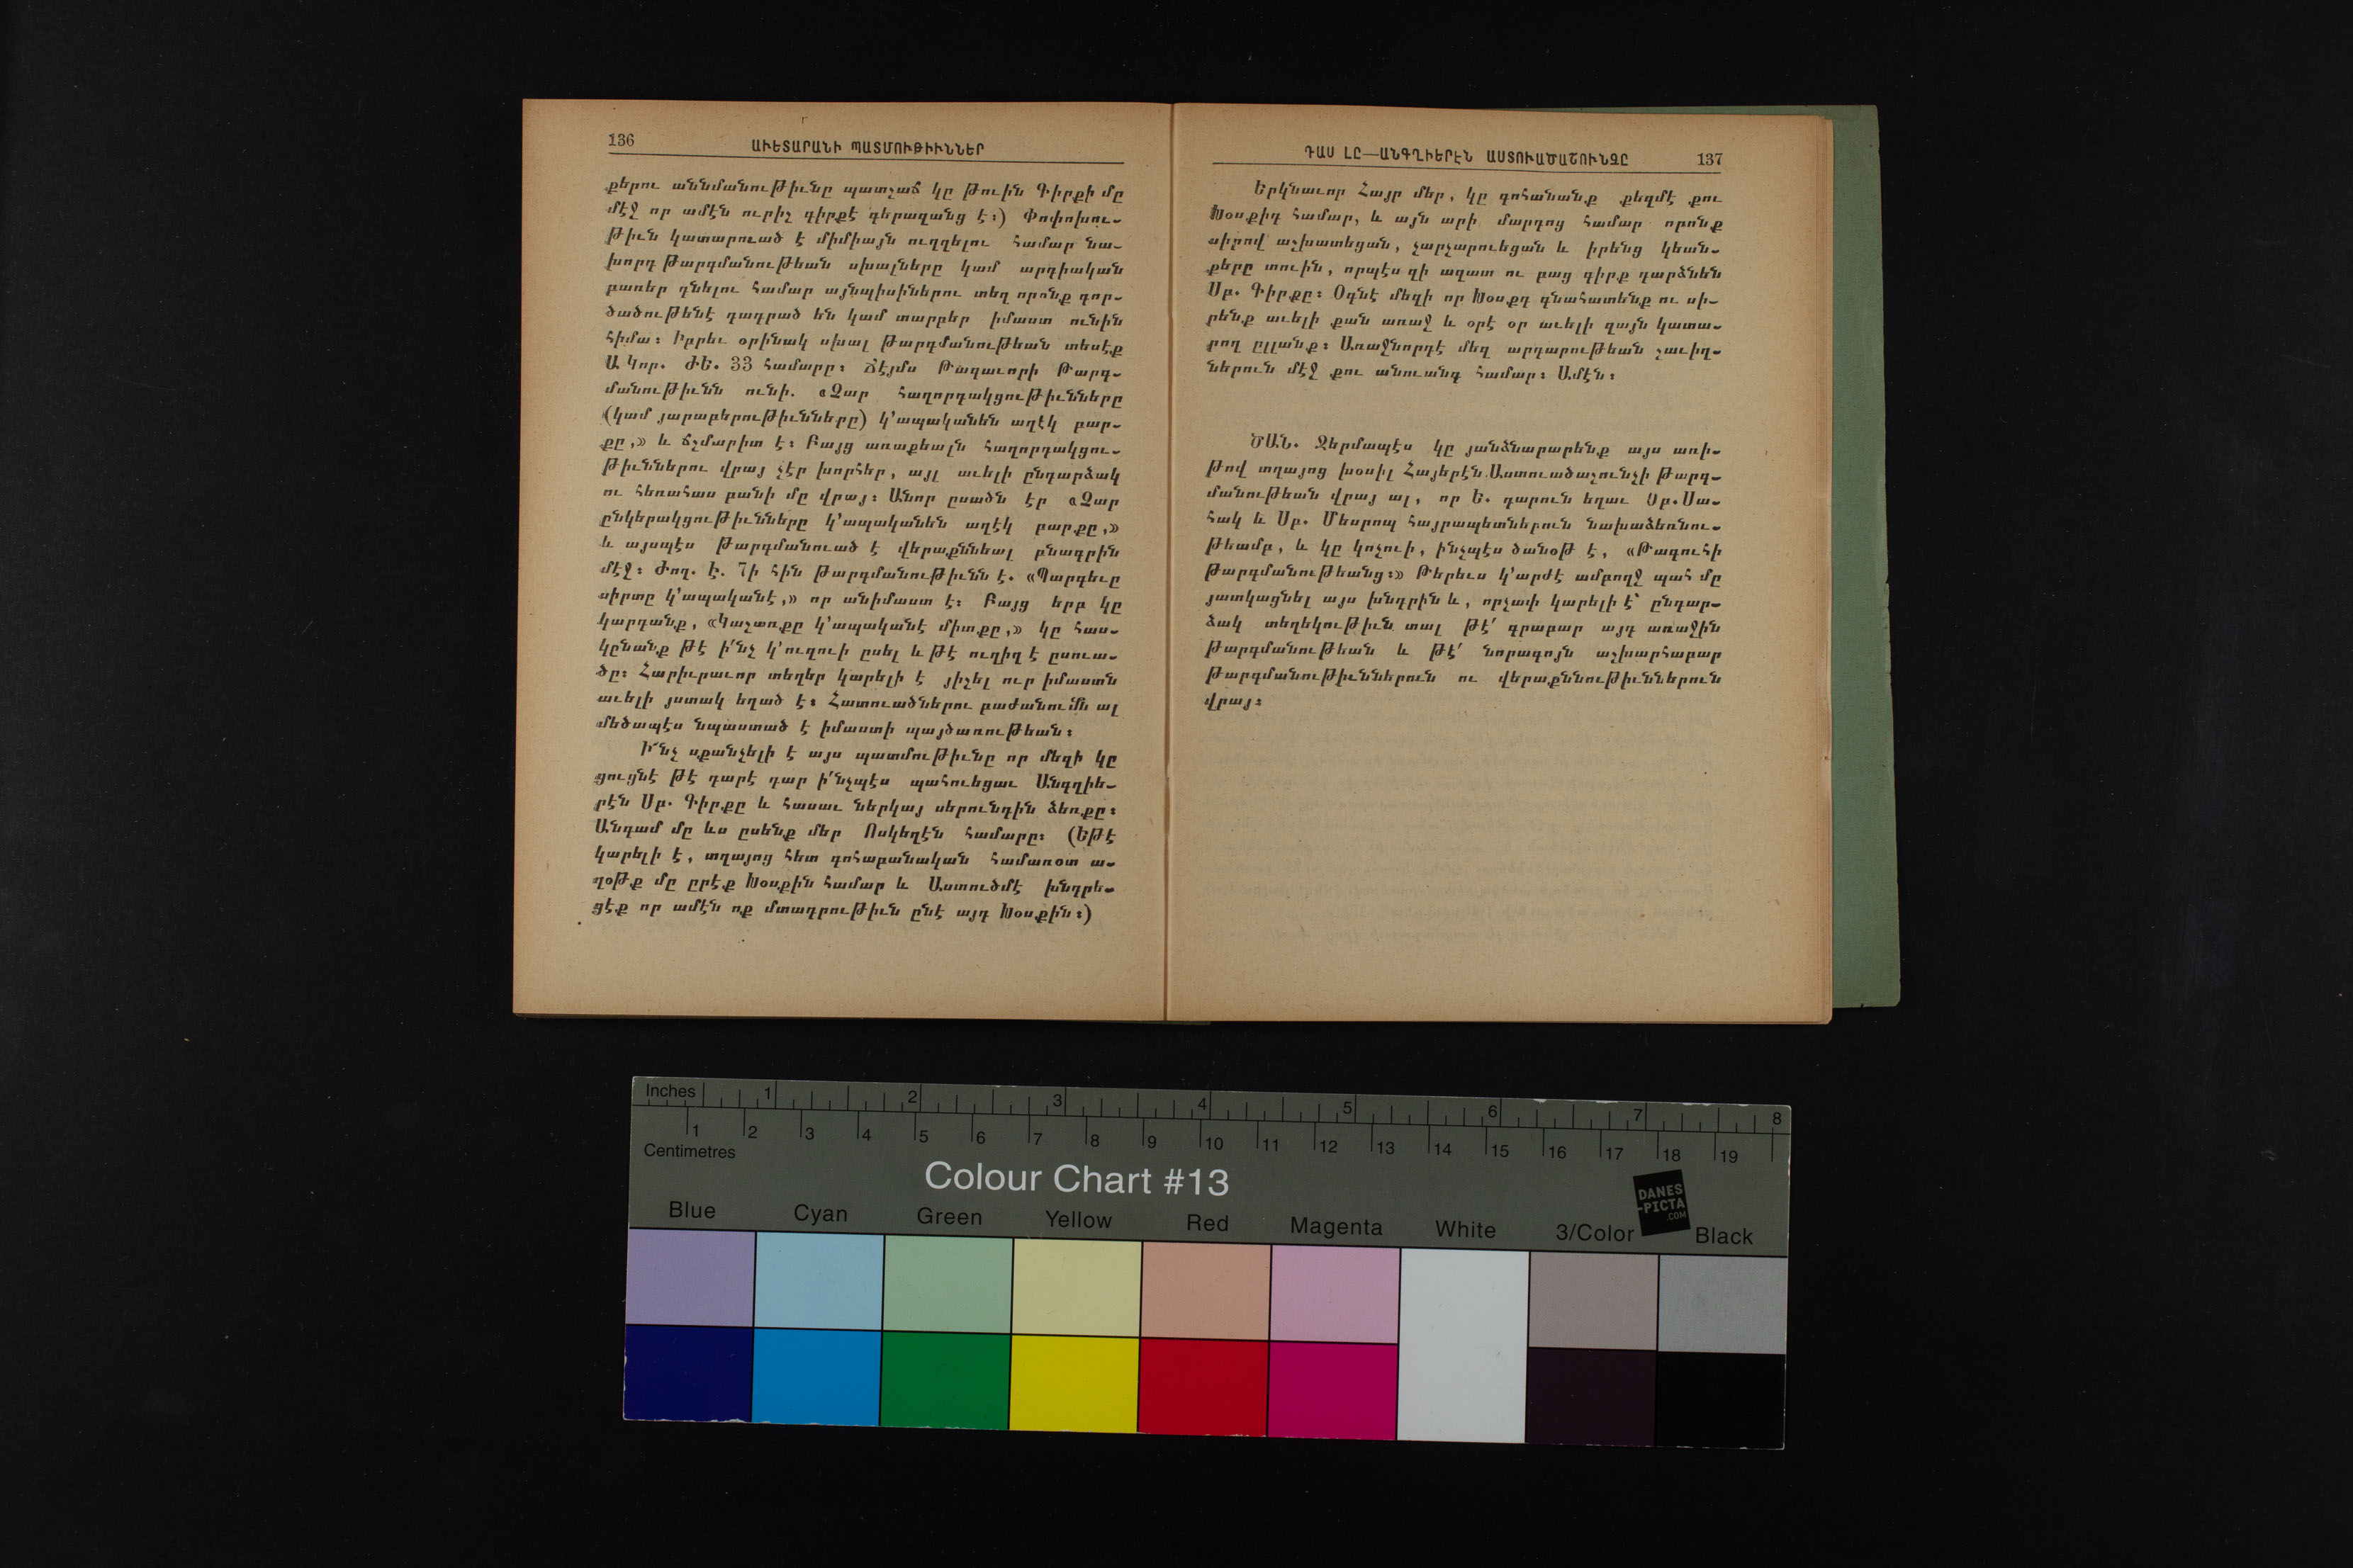 136
ԱՒԵՏԱՐԱՆԻ ՊԱՏՄՈՒԹԻՒՆՆԵՐ
քերու աննմանութիւնը պատշաճ կը թուին Գիրքի մը
մէջ որ ամէն ուրիշ գիրքէ գերազանց է։) Փոփոխու-
թիւն կատարուած է միմիայն ուղղելու համար նա-
խորդ թարգմանութեան սխալները կամ արդիական
բառեր դնելու համար այնպիսիներու տեղ որոնք գոր-
ծածութենէ դադրած են կամ տարբեր իմաստ ունին
հիմա։ Իբրեւ օրինակ սխալ թարգմանութեան տեսէք
Ա Կոր. ԺԵ. 33 համարը։ Ճէյմս Թագաւորի թարգ-
մանութիւնն ունի. «Չար հաղորդակցութիւնները
(կամ յարաբերութիւնները) կ՚ապականեն աղէկ բար-
քը,» և ճշմարիտ է։ Բայց առաքեալն հաղորդակցու-
թիւններու վրայ չէր խորհեր, այլ աւելի ընդարձակ
ու հեռահաս բանի մը վրայ։ Անոր ըսածն էր «Չար
ընկերակցութիւնները կ՚ապականեն աղէկ բարքը,»
և այսպէս թարգմանուած է վերաքննեալ բնագրին
մէջ։ Ժող. Է. 7ի հին թարգմանութիւնն է. «Պարգեւը
սիրտը կ՚ապականէ,» որ անիմաստ է։ Բայց երբ կը
կարդանք, «Կաշառքը կ՚ապականէ միտքը,» կը հաս-
կընանք թէ ի՛նչ կ՚ուզուի ըսել և թէ ուղիղ է ըսուա-
ծը։ Հարիւրաւոր տեղեր կարելի է յիշել ուր իմաստն
աւելի յստակ եղած է։ Հատուածներու բաժանումն ալ
մեծապէս նպաստած է իմաստի պայծառութեան։
Ի՜նչ սքանչելի է այս պատմութիւնը որ մեզի կը
ցուցնէ թէ դարէ դար ի՛նչպէս պահուեցաւ Անգղիե-
րէն Սբ. Գիրքը և հասաւ ներկայ սերունդին ձեռքը։
Անգամ մը ևս ըսենք մեր Ոսկեղէն համարը։ (Եթէ
կարելի է, տղայոց հետ գոհաբանական համառօտ ա-
ղօթք մը ըրէք Խօսքին համար և Աստուծմէ խնդրե-
ցէք որ ամէն ոք մտադրութիւն ընէ այդ Խօսքին։)
ԴԱՍ ԼԸ—ԱՆԳՂԻԵՐԷՆ ԱՍՏՈՒԱԾԱՇՈՒՆՉԸ
137
Երկնաւոր Հայր մեր, կը գոհանանք քեզմէ քու
Խօսքիդ համար, և այն արի մարդոց համար որոնք
սիրով աշխատեցան, չարչարուեցան և իրենց կեան-
քերը տուին, որպէս զի ազատ ու բաց գիրք դարձնեն
Սբ. Գիրքը։ Օգնէ մեզի որ Խօսքդ գնահատենք ու սի-
րենք աւելի քան առաջ և օրէ օր աւելի զայն կատա-
րող ըլլանք։ Առաջնորդէ մեզ արդարութեան շաւիղ-
ներուն մէջ քու անուանդ համար։ Ամէն։
ԾԱՆ. Ջերմապէս կը յանձնարարենք այս առի-
թով տղայոց խօսիլ Հայերէն Աստուածաշունչի թարգ-
մանութեան վրայ ալ, որ Ե. դարուն եղաւ Սբ. Սա-
հակ և Սբ. Մեսրոպ հայրապետներուն նախաձեռնու-
թեամբ, և կը կոչուի, ինչպէս ծանօթ է, «Թագուհի
թարգմանութեանց։» Թերեւս կ՚արժէ ամբողջ պահ մը
յատկացնել այս խնդրին և, որչափ կարելի է՝ ընդար-
ձակ տեղեկութիւն տալ թէ՛ գրաբար այդ առաջին
թարգմանութեան և թէ՛ նորագոյն աշխարհաբար
թարգմանութիւններուն ու վերաքննութիւններուն
վրայ։
Inches 1 2 3 4 5 6 7 8
1 2 3 4 5 6 7 8 9 10 11 12 13 14 15 16 17 18 19
Centimetres
Colour Chart #13
DANES
-PICTA
.COM
Blue Cyan Green Yellow Red Magenta White 3/Color Black